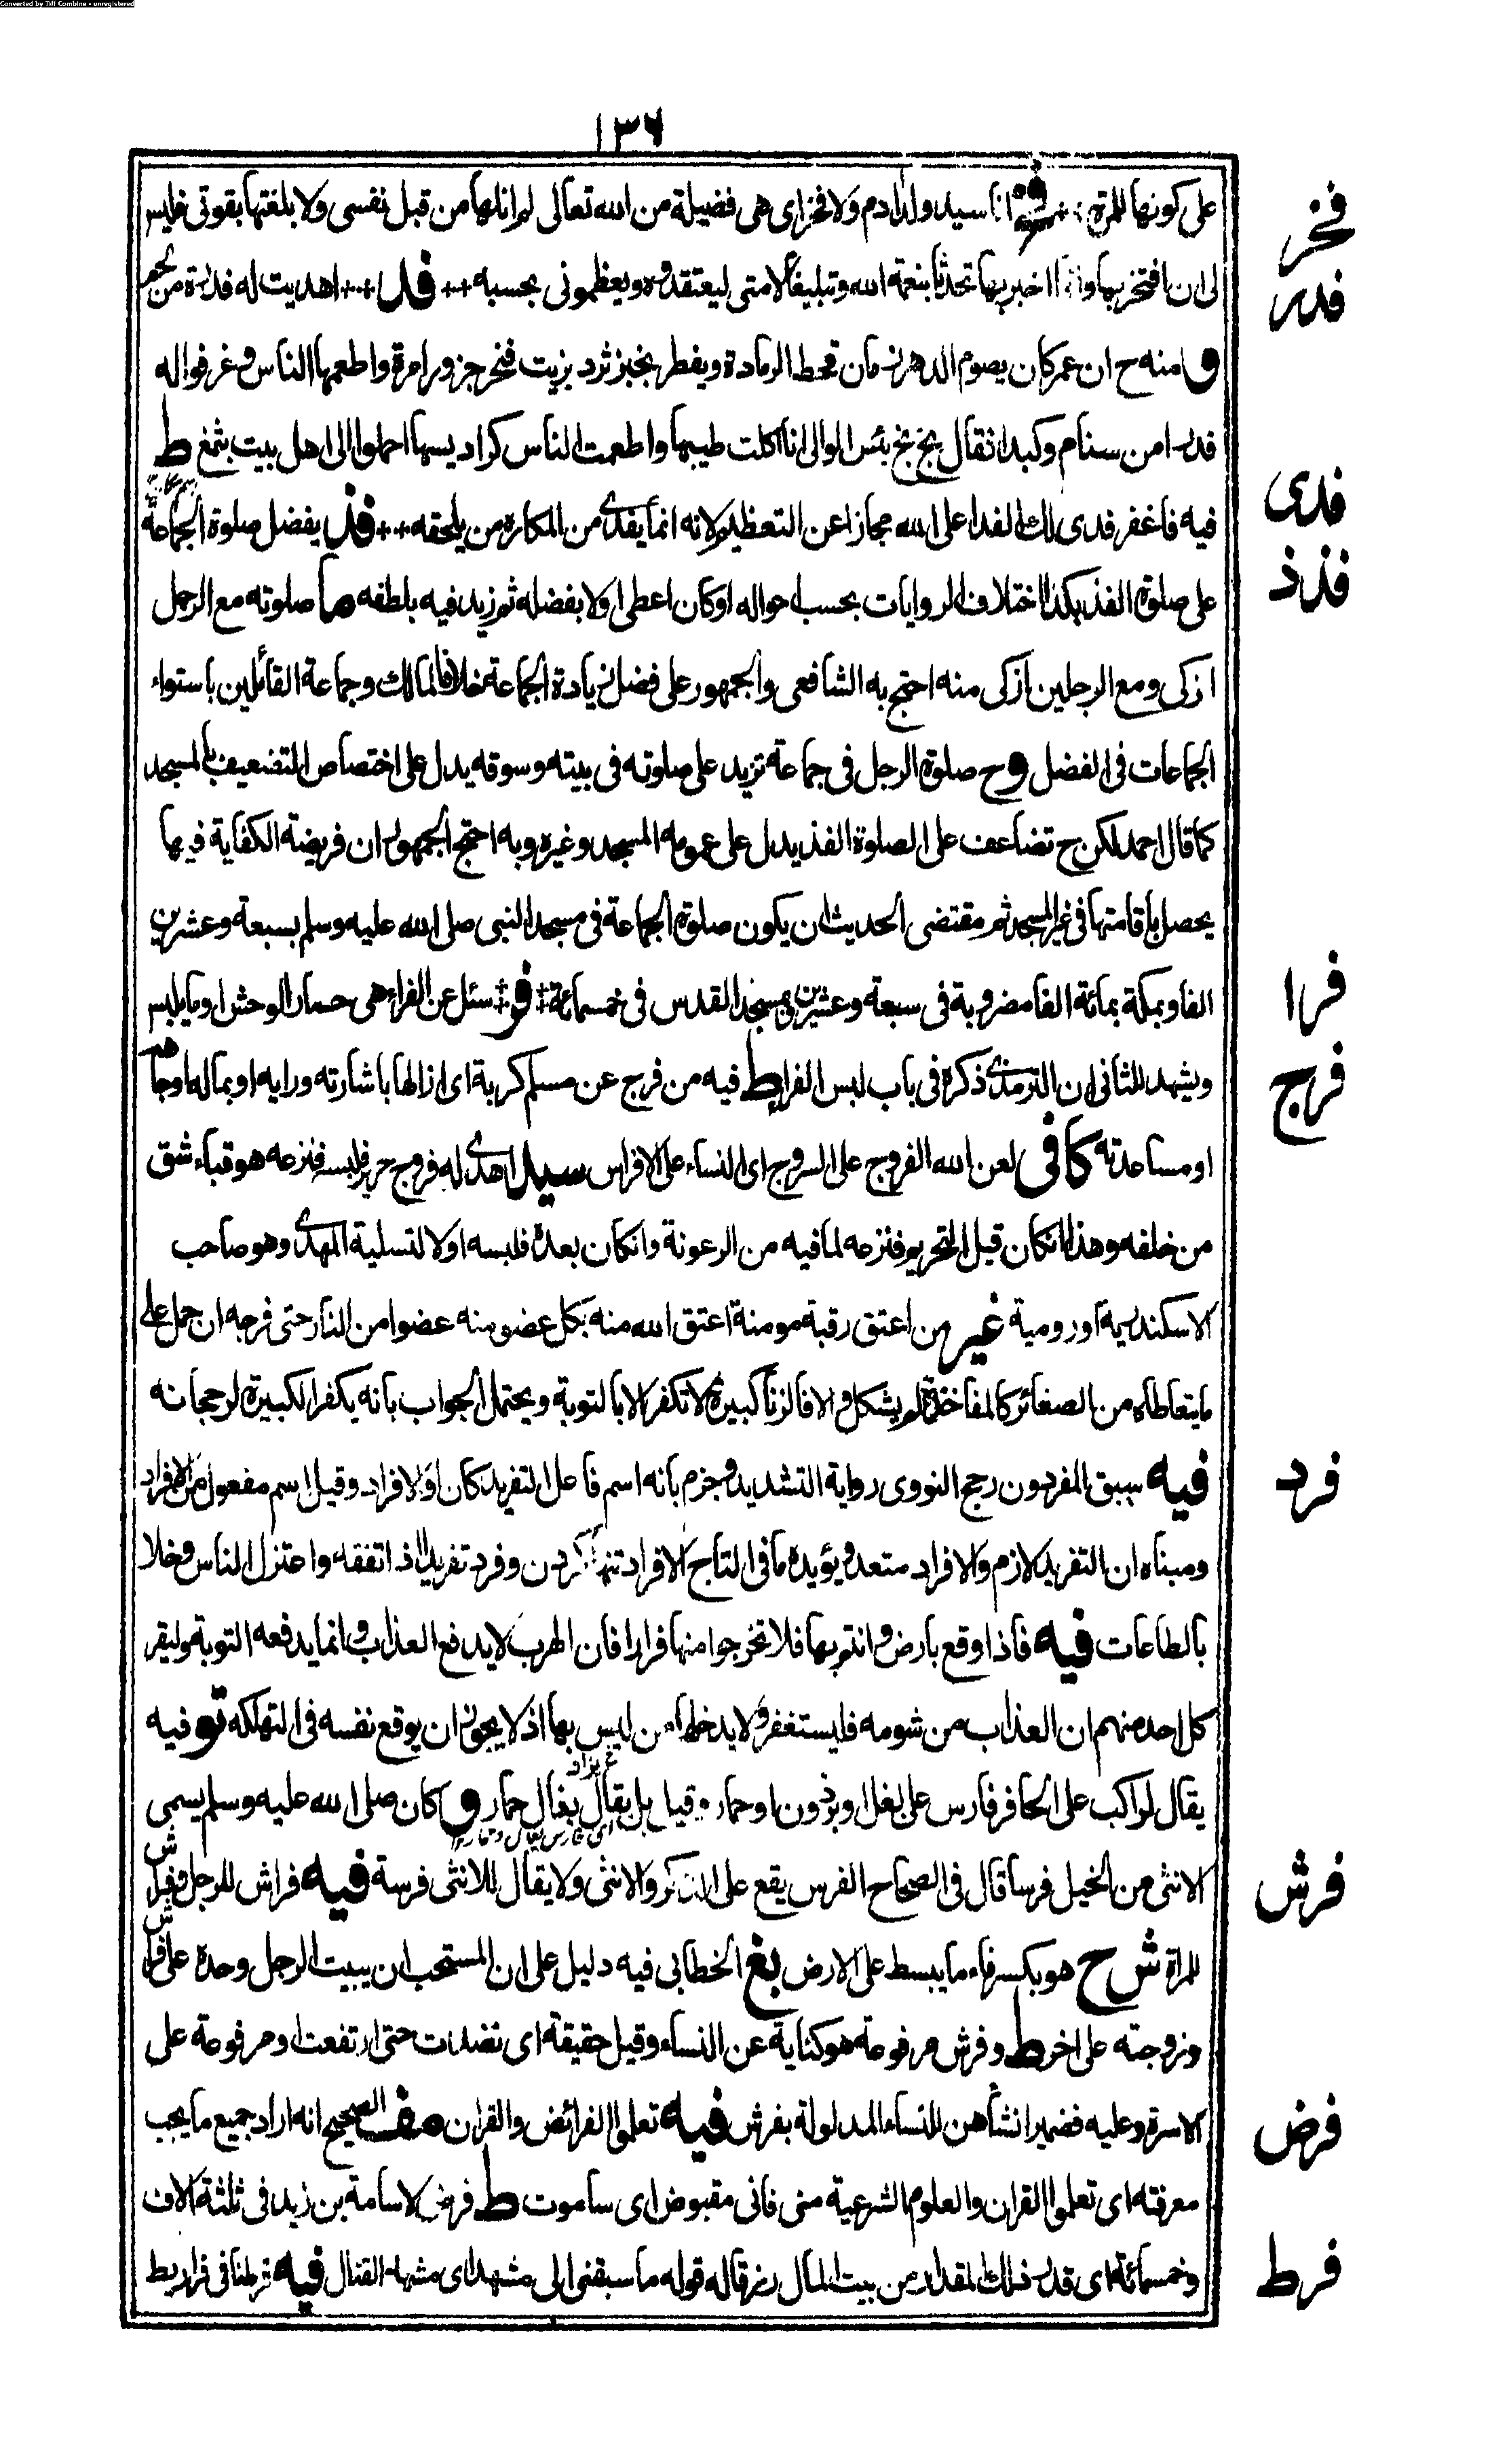 Converted by Tiff Combine - unregistered
١٣٦
على كونها للمرة فخر انا سيد ولد ادم ولا فخر اى هى فضيلة من الله تعالى لم انلها من قبل نفسى ولا بلغتها بقوتى فليس
لى ان افتخر بها وانما اخبر بها تحدثا بنعمة الله وتبليغا لامتى ليعتقدوه ويعظمونى بحسبه فد اهديت له فدرة من لحم
ومنه ح ان عمر كان يصوم الدهر زمان قحط الرمادة ويفطر بخبز ثرد بزيت فنحر جزورا مرة واطعمها الناس وغرفوا له
فدرا من سنام وكبد فقال بخ بخ بئس الوالى انا اكلت طيبها واطعمت الناس كراديسها احملوا الى اهل بيت بثمغ ط
فيه فاغفر فدى لك الفدا على الله مجازا عن التعظيم لانه انما يفدى من المكاره من يلحقه فذ يفضل صلوة الجماعة
على صلوة الفذ بكذا اختلاف الروايات بحسب احواله او كان اعطى اولا بفضله ثم زيد فيه بلطفه ما صلوته مع الرجل
ازكى ومع الرجلين ازكى منه احتج به الشافعى والجمهور على فضل زيادة الجماعة خلافا لمالك وجماعة القائلين باستواء
الجماعات فى الفضل وح صلوة الرجل فى جماعة تزيد على صلوته فى بيته وسوقه يدل على اختصاص التضعيف بالمسجد
كما قال احمد لكن ح تضاعف على الصلوة الفذ يدل على عمومه المسجد وغيره وبه احتج الجمهور ان فريضة الكفاية فيها
يحصل باقامتها فى غير المسجد ثم مقتضى الحديث ان يكون صلوة الجماعة فى مسجد النبى صلى الله عليه وسلم بسبعة وعشرين
الفا وبمكة بمائة الفا مضروبة فى سبعة وعشرين وبمسجد القدس فى خمسمائة فر سئل عن الفراء هى حمار الوحش او ما يلبس
ويشهد للثانى ان الترمذى ذكره فى باب لبس الفرا ط فيه من فرج عن مسلم كربة اى ازالها باشارته ورايه او بماله او جاهه
او مساعدته كافى لعن الله الفروج على السروج اى النساء على الافراس سيد اهدى له فروج حرير فلبسه فنزعه هو قباء شق
من خلفه وهذا انكان قبل التحريم فنزعه لما فيه من الرعونة وانكان بعده فلبسه اولا لتسلية المهدى وهو صاحب
الاسكندرية او رومية غير من اعتق رقبة مومنة اعتق الله منه بكل عضو منه عضوا من النار حتى فرجه ان حمل على
ما يتعاطاه من الصغائر كالمفاخذة لم يشكل والا فالزنا كبيرة لا تكفر الا بالتوبة ويحتمل الجواب بانه يكفر الكبيرة لرجحانه
فيه سبق المفردون رجح النووى رواية التشديد وجزم بانه اسم فاعل التفريد كان او الافراد وقيل اسم مفعول من الافراد
ومبناه ان التفريد لازم والافراد متعد ويؤيده ما فى التاج الافراد تنها كردن وفرد تفريدا اذا تفقه واعتزل الناس وخلا
بالطاعات فيه فاذا وقع بارض وانتم بها فلا تخرجوا منها فرارا فان الهرب لا يدفع العذاب وانما يدفعه التوبة وليقر
كل احد منهم ان العذاب من شومه فليستغفر ولا يدخل من ليس بها اذ لا يجوز ان يوقع نفسه فى التهلكه تو فيه
يقال لراكب على الحافر فارس على بغل او برذون او حمار وقيل بل يقال بغال حمار و كان صلى الله عليه وسلم يسمى
الانثى من الخيل فرسا قال فى الصحاح الفرس يقع على الذكر والانثى ولا يقال للانثى فرسة فيه فراش للرجل وفراش
للمراة ش ح هو بكسر فاء ما يبسط على الارض بغ الخطابى فيه دليل على ان المستحب ان يبيت الرجل وحده على فراش
وزوجته على اخر ط وفرش مرفوعة هو كناية عن النساء وقيل حقيقة اى نضدت حتى ارتفعت او مرفوعة على
الاسرة وعليه فضمير انشاهن للنساء المدلولة بفرش فيه تعلموا الفرائض والقران مف الصحيح انه اراد جميع ما يجب
معرفته اى تعلموا القران والعلوم الشرعية منى فانى مقبوض اى ساموت ط فرض لاسامة بن زيد فى ثلثة الاف
وخمسمائة اى قدر ذلك المقدار من بيت المال رزقا له قوله ما سبقنى الى مشهد اى مشهد القتال فيه فرطنا فى قراريط
فخر
فدر
فدى
فذذ
فرا
فرج
فرد
فرش
فرض
فرط